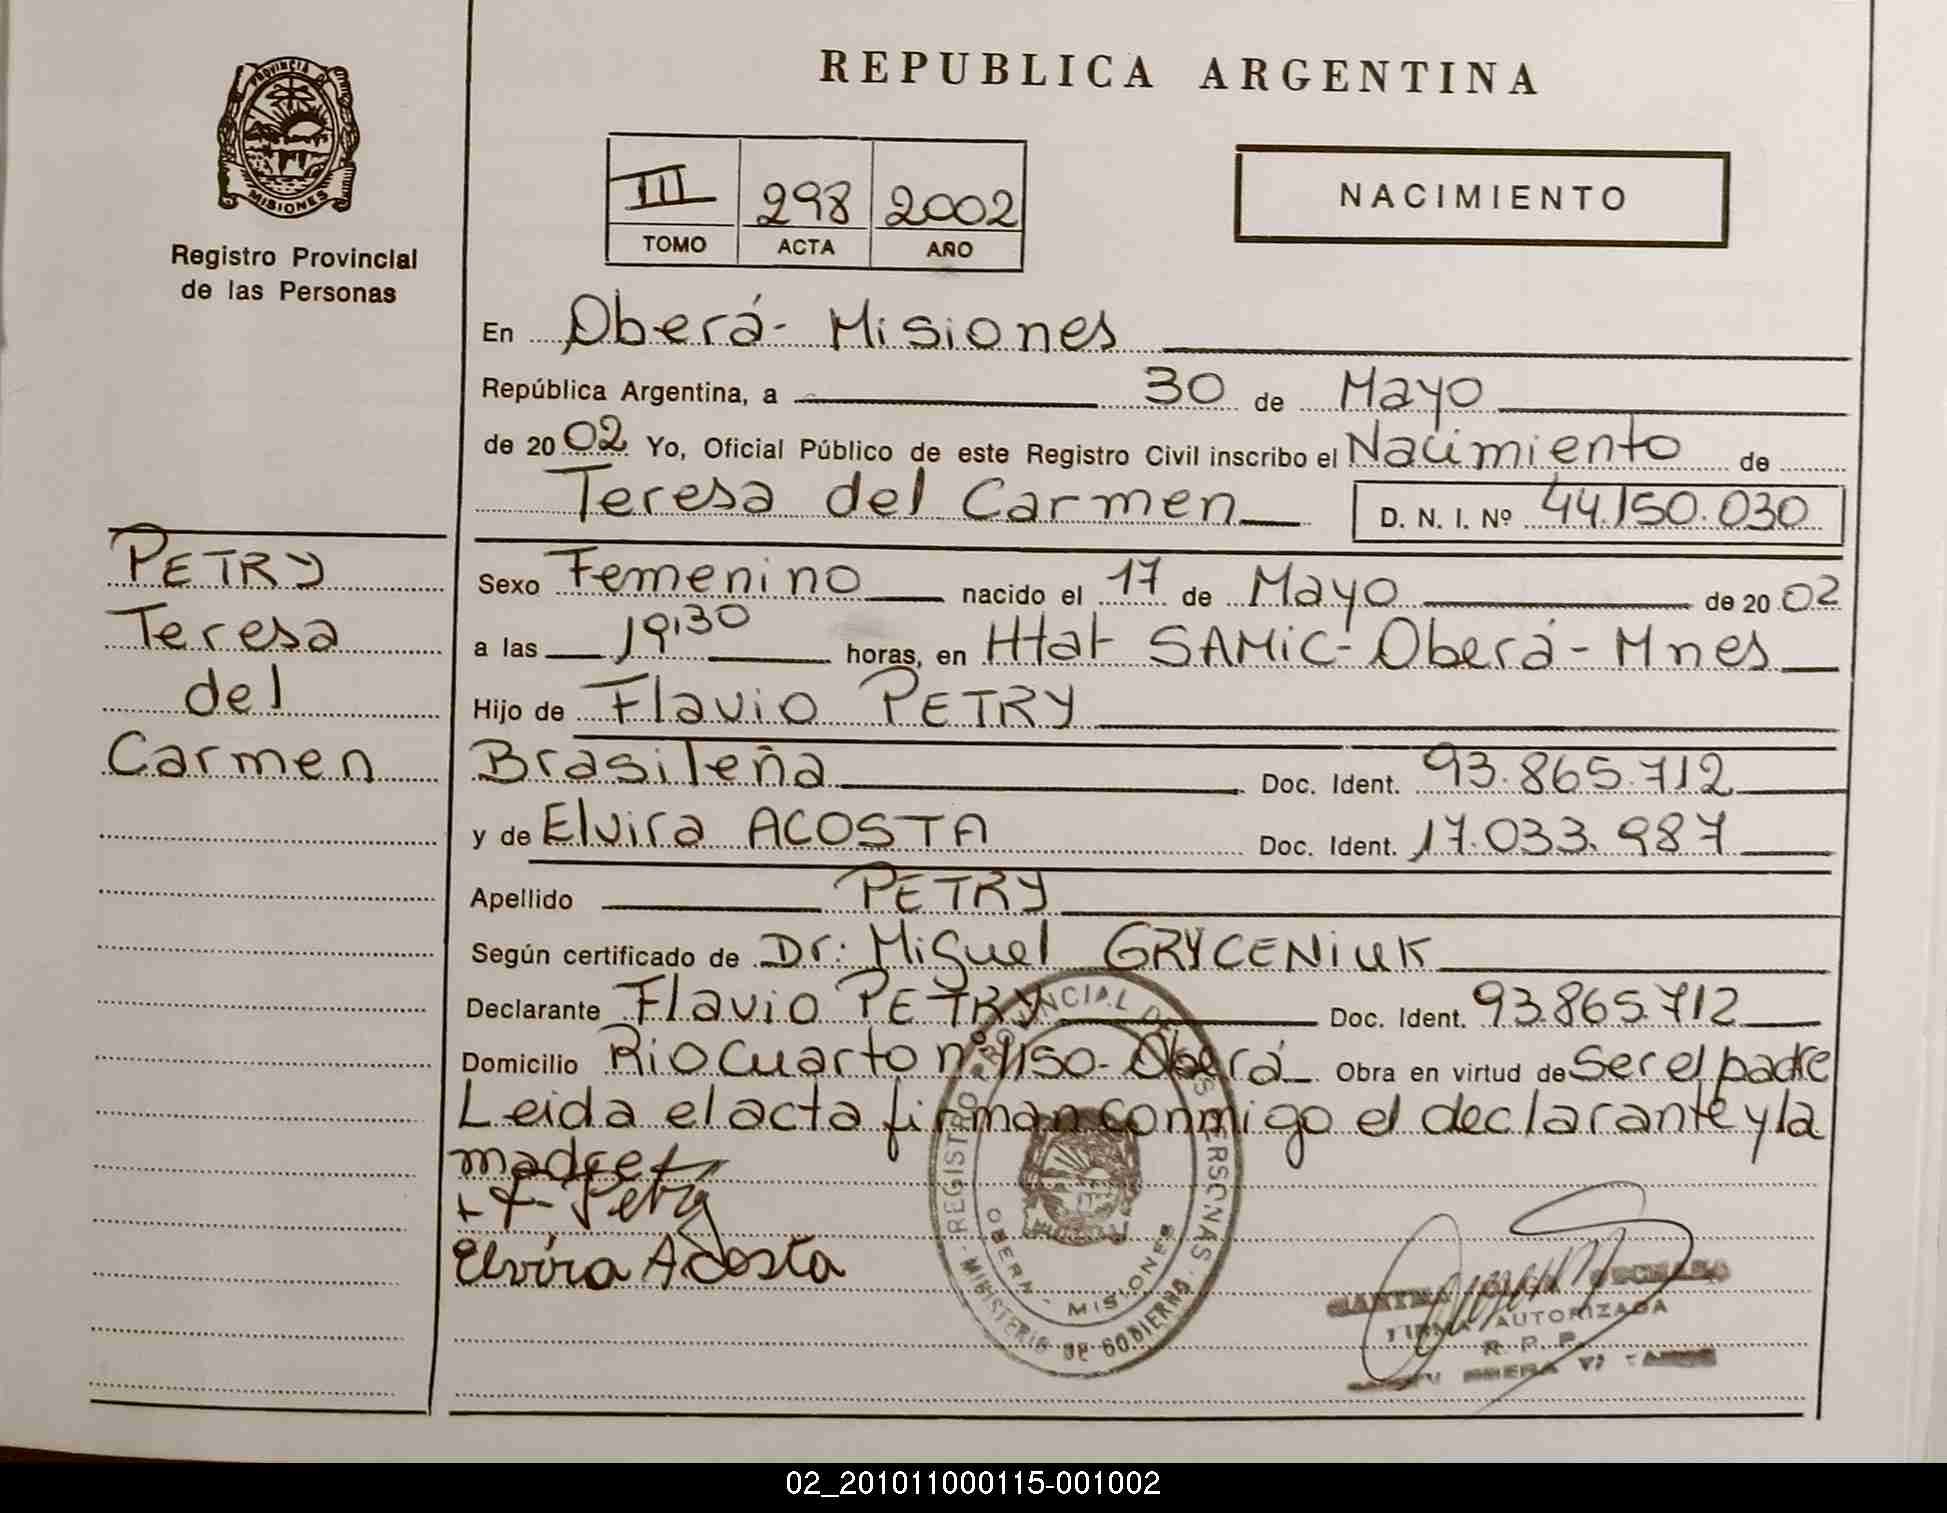 REPUBLICA ARGENTINA
PROVINCIA D
MISIONES
Registro Provincial
de las Personas
III 298 2002
TOMO ACTA AÑO
NACIMIENTO
En Oberá - Misiones
República Argentina, a 30 de Mayo
de 2002 Yo, Oficial Público de este Registro Civil inscribo el Nacimiento de
Teresa del Carmen D. N. I. Nº 44.150.030
PETRY
Teresa
del
Carmen
Sexo Femenino nacido el 17 de Mayo de 2002
a las 19:30 horas, en Htal SAMIC - Oberá - Mnes
Hijo de Flavio PETRY
Brasileña Doc. Ident. 93.865.712
y de Elvira ACOSTA Doc. Ident. 17.033.987
Apellido PETRY
Según certificado de Dr: Miguel GRYCENIUK
Declarante Flavio PETRY Doc. Ident. 93.865.712
Domicilio Rio Cuarto nº 1150 - Oberá Obra en virtud de Ser el padre
Leida el acta firman conmigo el declarante y la
madre
+ F- Petry
Elvira Acosta
REGISTRO PROVINCIAL DE LAS PERSONAS
MINISTERIO DE GOBIERNO
OBERA - MISIONES
FIRMA AUTORIZADA
R. P. P.
OBERA
02_201011000115-001002